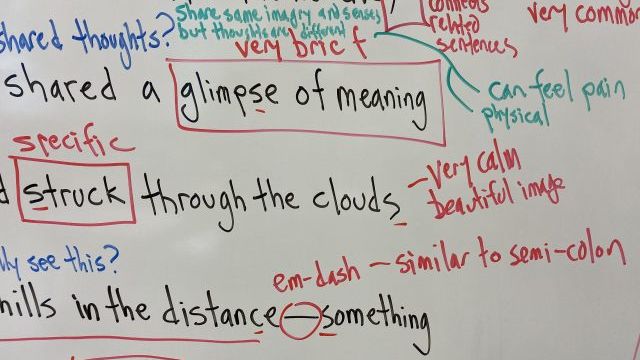 Share same imagry and senses
but thoughts are different
connects
related
sentences
very common
shared thoughts?
very brief
shared a glimpse of meaning
can feel pain
physical
specific
struck through the clouds
- very calm
beautiful image
see this?
em-dash - similar to semi-colon
hills in the distance — something